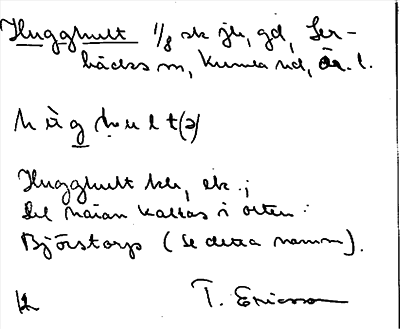 Hugghult 1/8 sk jb, gd, Ler-
bäcks sn, Kumla hd, Ör. l.
h ù g h u l t(ə)
Hugghult hls, ek.;
del härav kallas i orten:
Björstorp (Se detta namn).
T. Ericsson